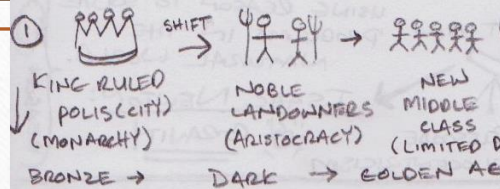 1 SHIFT
KING RULED
POLIS (CITY)
(MONARCHY)
NOBLE
LANDOWNERS
(ARISTOCRACY)
NEW
MIDDLE
CLASS
(LIMITED D
BRONZE → DARK → GOLDEN AG